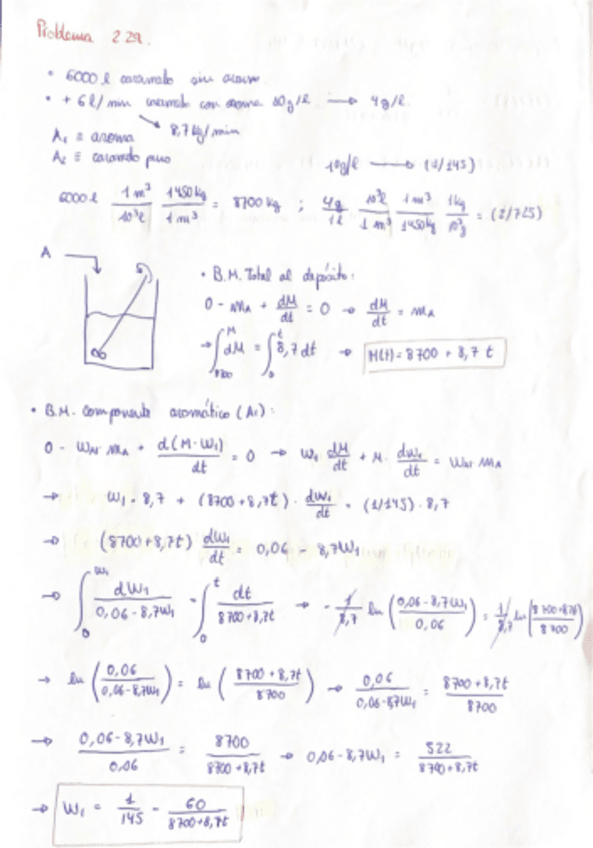 Problema 2.29.
• 6000 l caramelo sin aroma
• + 6 l/min caramelo con aroma 10 g/l → 4 g/l
8,7 kg/min
A₁ ≡ aroma
A₂ ≡ caramelo puro
10 g/l → (1/145)
6000 l 1 m³/10³ l 1450 kg/1 m³ = 8700 kg ; 4g/1l 10³ l/1 m³ 1 m³/1450 kg 1 kg/10³ g = (2/725)
A
• B.M. Total al depósito:
0 - mA + dM/dt = 0 → dM/dt = mA
→ ∫₈₇₀₀^M dM = ∫₀^t 8,7 dt → M(t) = 8700 + 8,7 t
• B.M. componente aromático (A₁):
0 - WA1 mA + d(M·W₁)/dt = 0 → W₁ dM/dt + M · dW₁/dt = WA1 mA
→ W₁ · 8,7 + (8700 + 8,7t) · dW₁/dt = (1/145) · 8,7
→ (8700 + 8,7t) dW₁/dt = 0,06 - 8,7W₁
→ ∫₀^W₁ dW₁/(0,06 - 8,7W₁) = ∫₀^t dt/(8700 + 8,7t) → - 1/8,7 ln (0,06 - 8,7W₁/0,06) = 1/8,7 ln (8700 + 8,7t/8700)
→ ln (0,06/0,06 - 8,7W₁) = ln (8700 + 8,7t/8700) → 0,06/(0,06 - 8,7W₁) = (8700 + 8,7t)/8700
→ (0,06 - 8,7W₁)/0,06 = 8700/(8700 + 8,7t) → 0,06 - 8,7W₁ = 522/(8700 + 8,7t)
→ W₁ = 1/145 - 60/(8700 + 8,7t)